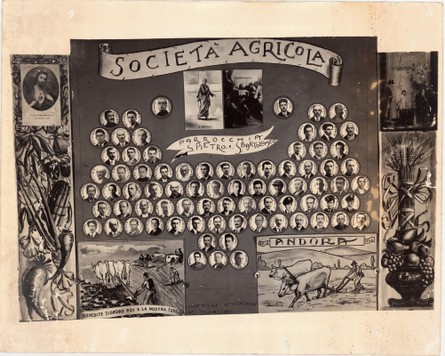 SOCIETÀ AGRICOLA
PARROCCHIA
S. PIETRO E S. BARTOLOMEO
ANDORA
BENEDITE SIGNORE NOI E LA NOSTRA TERRA